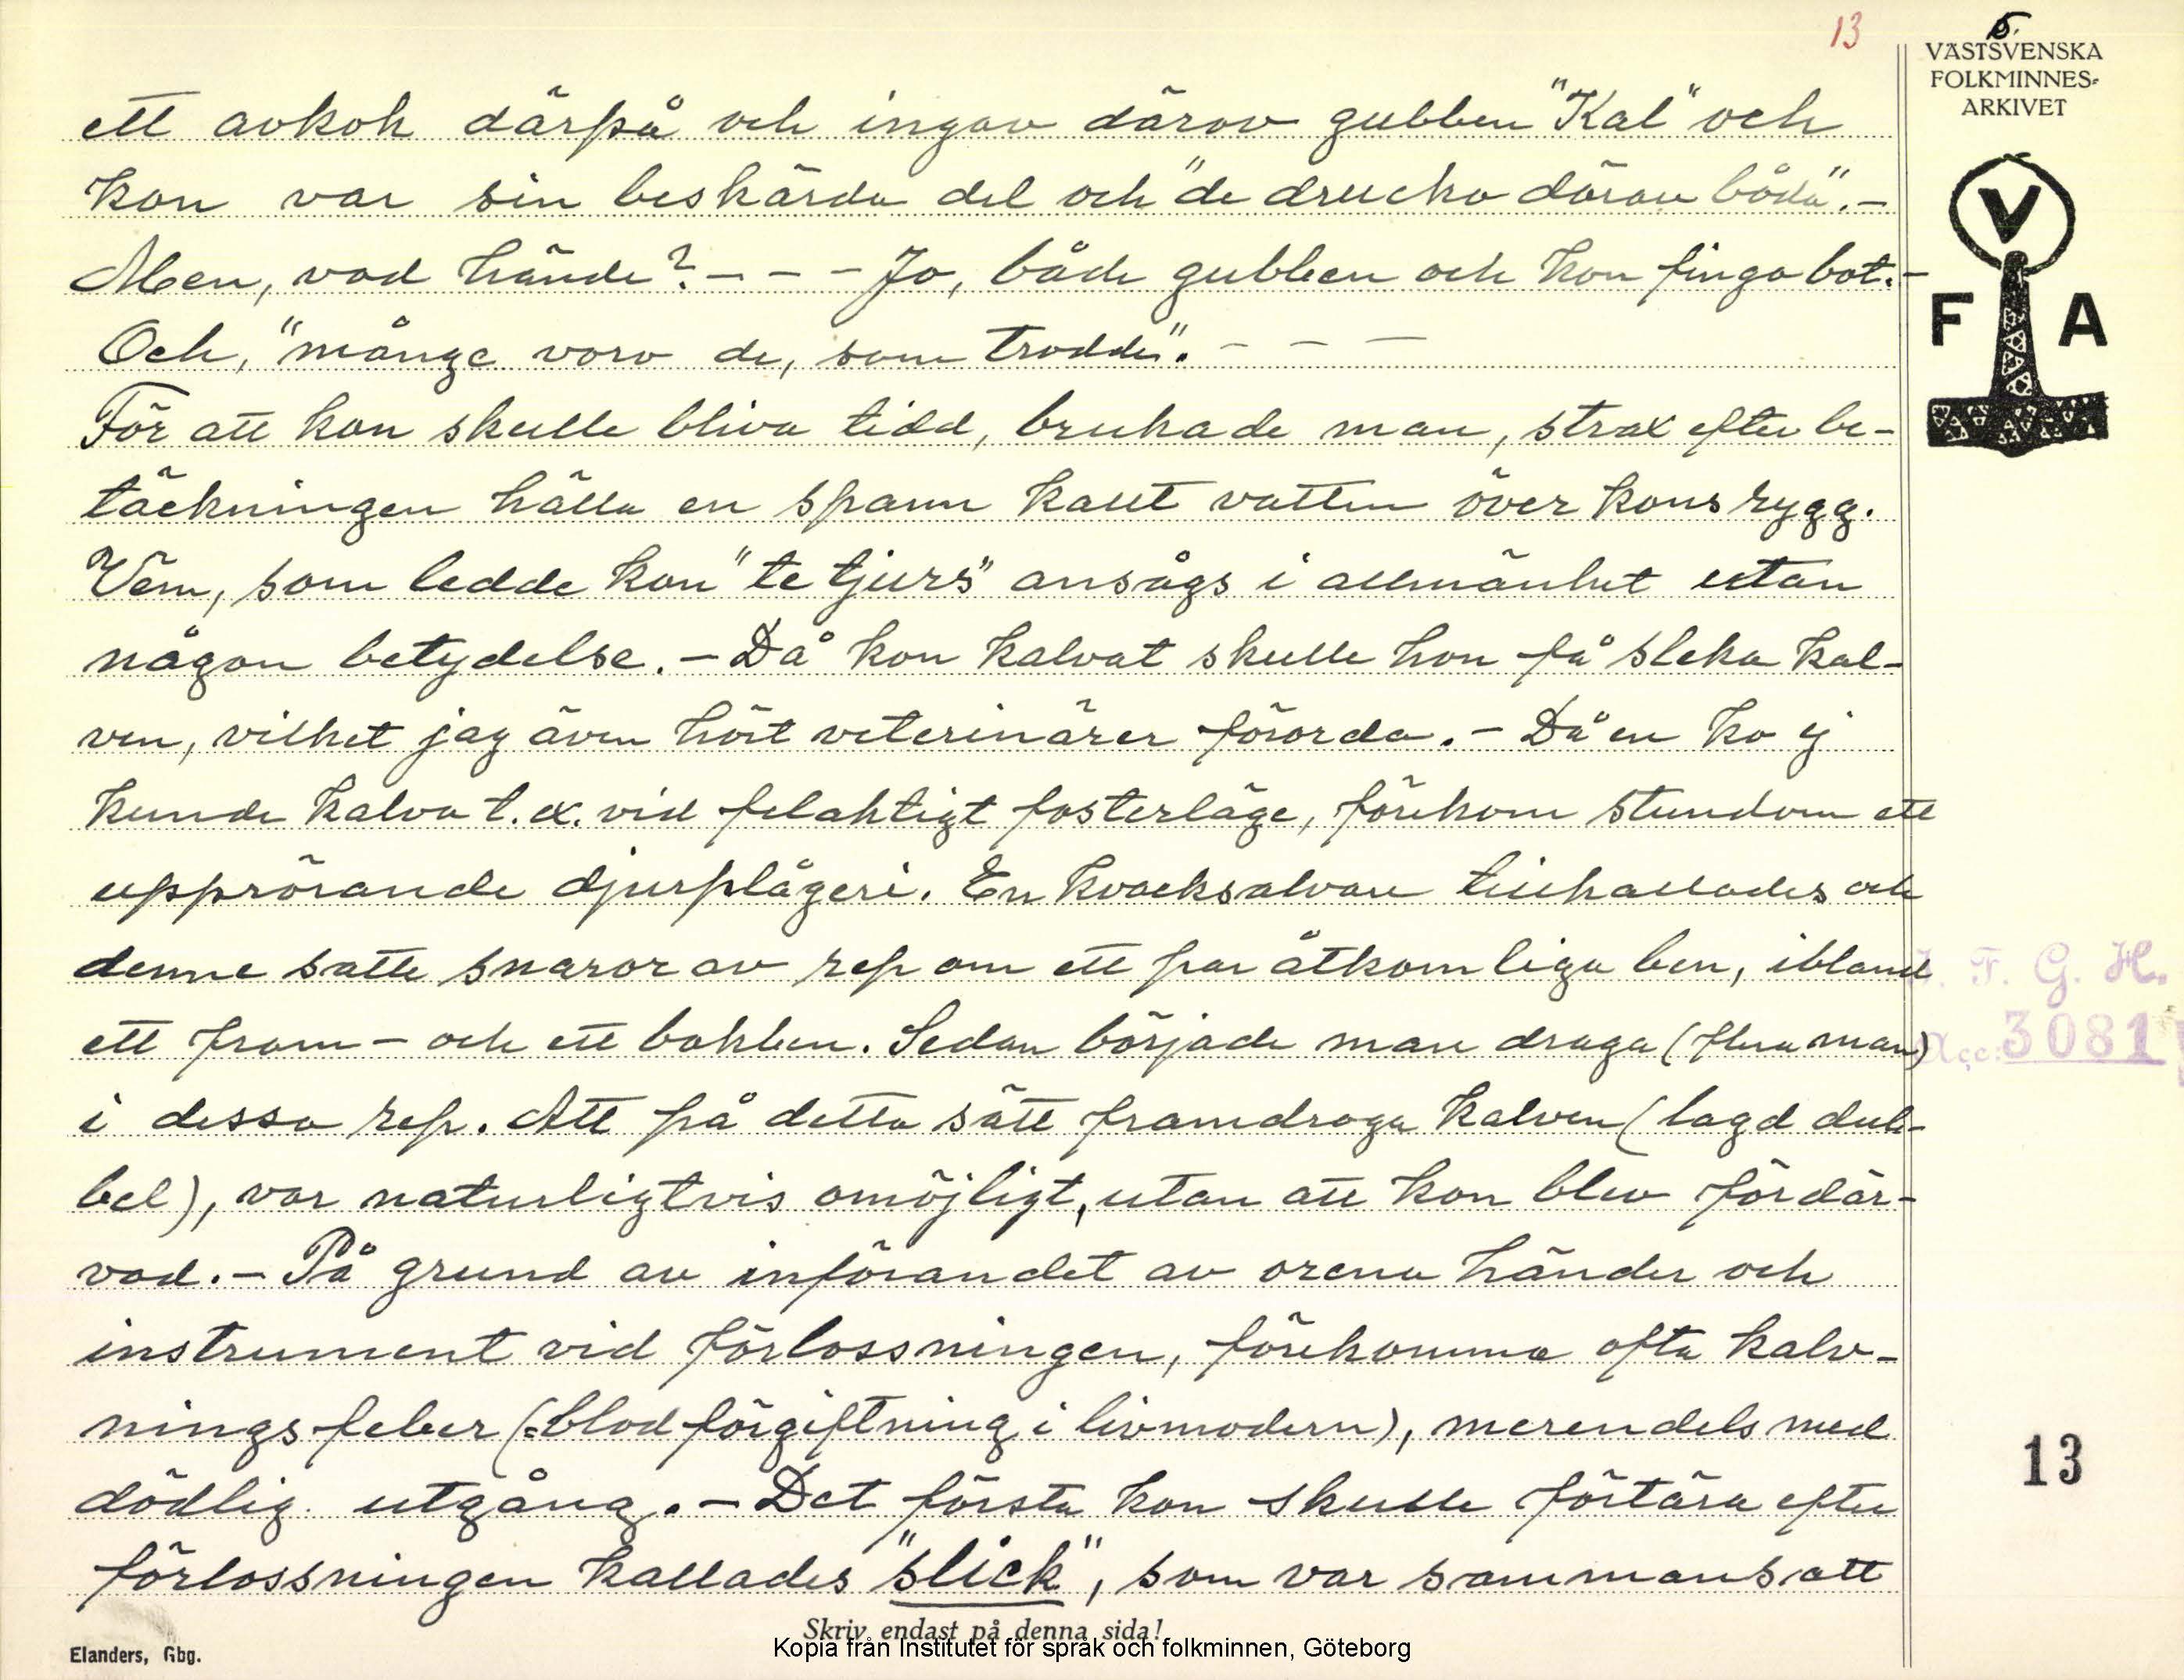 13
5.
VÄSTSVENSKA
FOLKMINNES-
ARKIVET
V
F A
ett avkok därpå och ingav därav gubben "Kal" och
kon var sin beskärda del och "de drucko därav båda".-
Men, vad hände? - - - Jo, både gubben och kon fingo bot.-
Och, "många voro de, som trodde". - - -
För att kon skulle bliva tidd, brukade man, strax efter be-
täckningen hälla en spann kallt vatten över kons rygg.
Vem, som ledde kon "te tjurs" ansågs i allmänhet utan
någon betydelse. - Då kon kalvat skulle hon få sleka kal-
ven, vilket jag även hört veterinärer förorda. - Då en ko ej
kunde kalva t.ex. vid felaktigt fosterläge, förekom stundom ett
upprörande djurplågeri. En kvacksalvare tillkallades och
denne satte snaror av rep om ett par åtkomliga ben, ibland
ett fram- och ett bakben. Sedan började man draga (flera man)
i dessa rep. Att på detta sätt framdraga kalven (lagd dub-
bel), var naturligtvis omöjligt, utan att kon blev fördär-
vad. - På grund av införandet av orena händer och
instrument vid förlossningen, förekomma ofta kalv-
ningsfeber (=blodförgiftning i livmodern), merendels med
dödlig utgång. - Det första kon skulle förtära efter
förlossningen kallades "slick", som var sammansatt
I. F. G. H.
Acc. 3081
13
Skriv endast på denna sida!
Kopia från Institutet för språk och folkminnen, Göteborg
Elanders, Gbg.